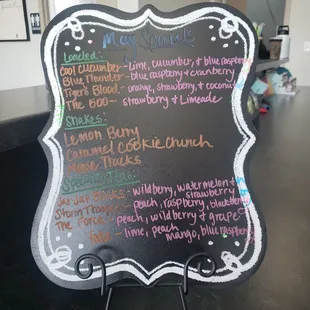 May Specials
Loaded:
Cool Cucumber - lime, cucumber, & blue raspberry
Blue Thunder - blue raspberry & cranberry
Tiger's Blood - orange, strawberry, & coconut
The 600 - strawberry & Limeade
Shakes:
Lemon Berry
Caramel Cookie Crunch
Moose Tracks
Teas:
Jar Jar Binks - wildberry, watermelon &
strawberry
Storm Trooper - peach, raspberry, blackberry
The Force - peach, wildberry & grape
- lime, peach
mango, blue raspberry